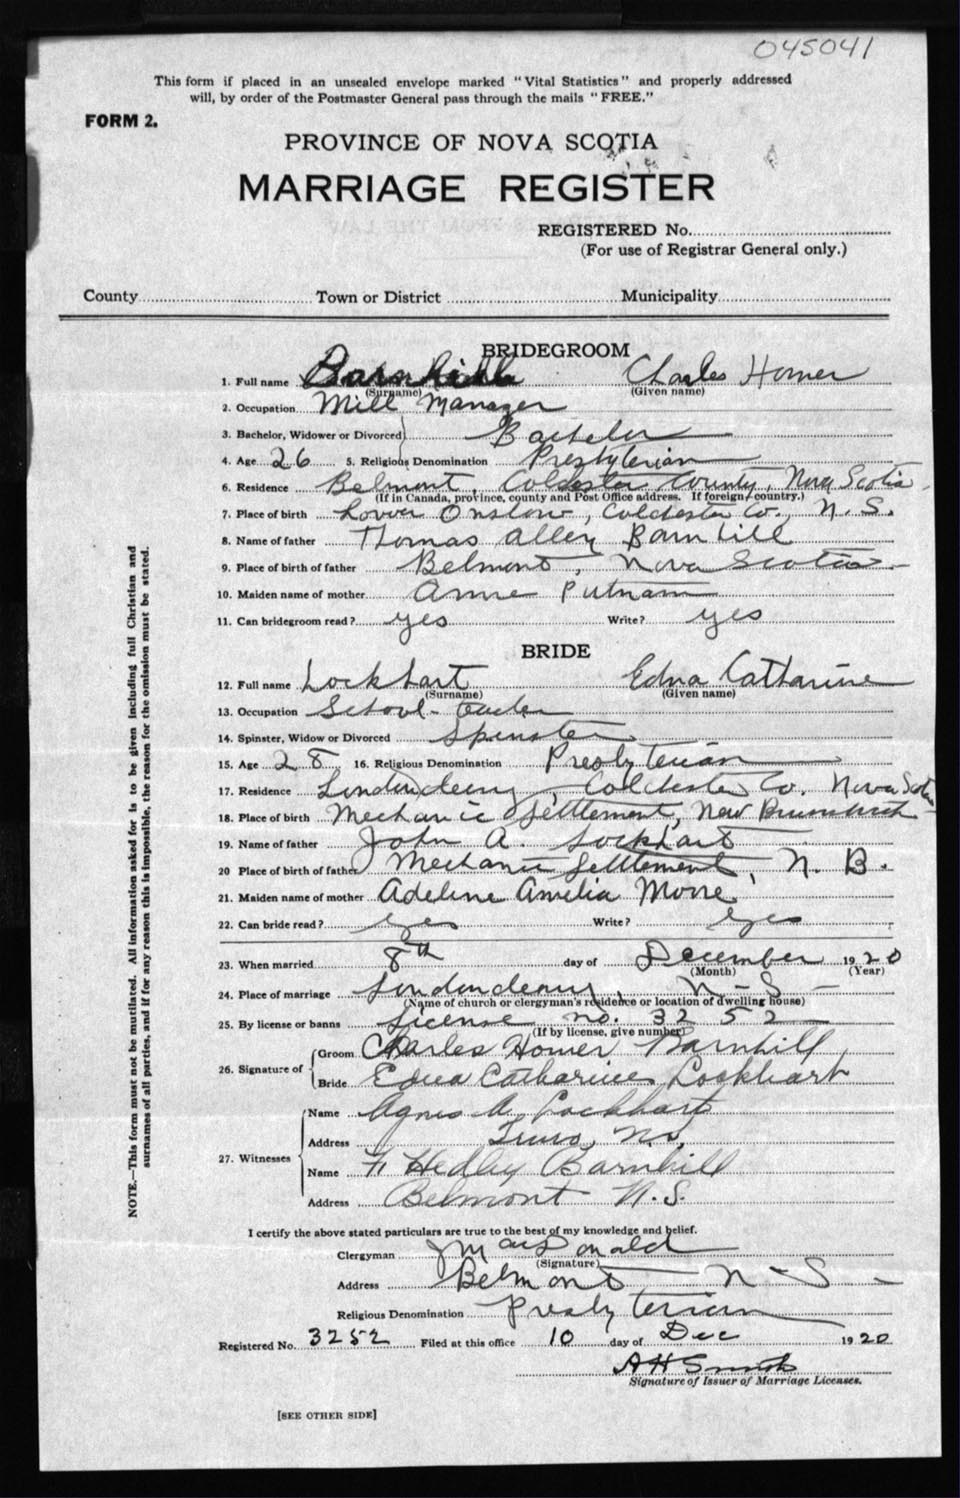 045041
This form if placed in an unsealed envelope marked "Vital Statistics" and properly addressed
will, by order of the Postmaster General pass through the mails "FREE."
FORM 2.
PROVINCE OF NOVA SCOTIA
MARRIAGE REGISTER
REGISTERED No.
(For use of Registrar General only.)
County Town or District Municipality
BRIDEGROOM
1. Full name Barnhill Charles Homer
(Surname) (Given name)
2. Occupation Mill Manager
3. Bachelor, Widower or Divorced} Bachelor
4. Age 26 5. Religious Denomination Presbyterian
6. Residence Belmont, Colchester County, Nova Scotia
(If in Canada, province, county and Post Office address. If foreign country.)
7. Place of birth Lower Onslow, Colchester Co., N.S.
8. Name of father Thomas Allen Barnhill
9. Place of birth of father Belmont, Nova Scotia
10. Maiden name of mother Annie Putnam
11. Can bridegroom read? yes Write? yes
BRIDE
12. Full name Lockhart Edna Catharine
(Surname) (Given name)
13. Occupation School-teacher
14. Spinster, Widow or Divorced Spinster
15. Age 28 16. Religious Denomination Presbyterian
17. Residence Londonderry, Colchester Co. Nova Scotia
18. Place of birth Mechanic Settlement, New Brunswick
19. Name of father John A. Lockhart
20 Place of birth of father Mechanic Settlement, N. B.
21. Maiden name of mother Adeline Amelia Moore
22. Can bride read? Yes Write? Yes
23. When married 8th day of December 1920
(Month) (Year)
24. Place of marriage Londonderry, N-S-
(Name of church or clergyman's residence or location of dwelling house)
25. By license or banns License no. 3252
(If by license, give number)
26. Signature of { Groom Charles Homer Barnhill
Bride Edna Catharine Lockhart
27. Witnesses { Name Agnes A. Lockhart
Address Truro, N.S.
Name F. Hedley Barnhill
Address Belmont N.S.
I certify the above stated particulars are true to the best of my knowledge and belief.
Clergyman J M MacDonald
(Signature)
Address Belmont N-S-
Religious Denomination Presbyterian
Registered No. 3252 Filed at this office 10 day of Dec 1920
A H Smith
Signature of Issuer of Marriage Licenses.
[SEE OTHER SIDE]
NOTE.—This form must not be mutilated. All information asked for is to be given including full Christian and
surnames of all parties, and if for any reason this is impossible, the reason for the omission must be stated.